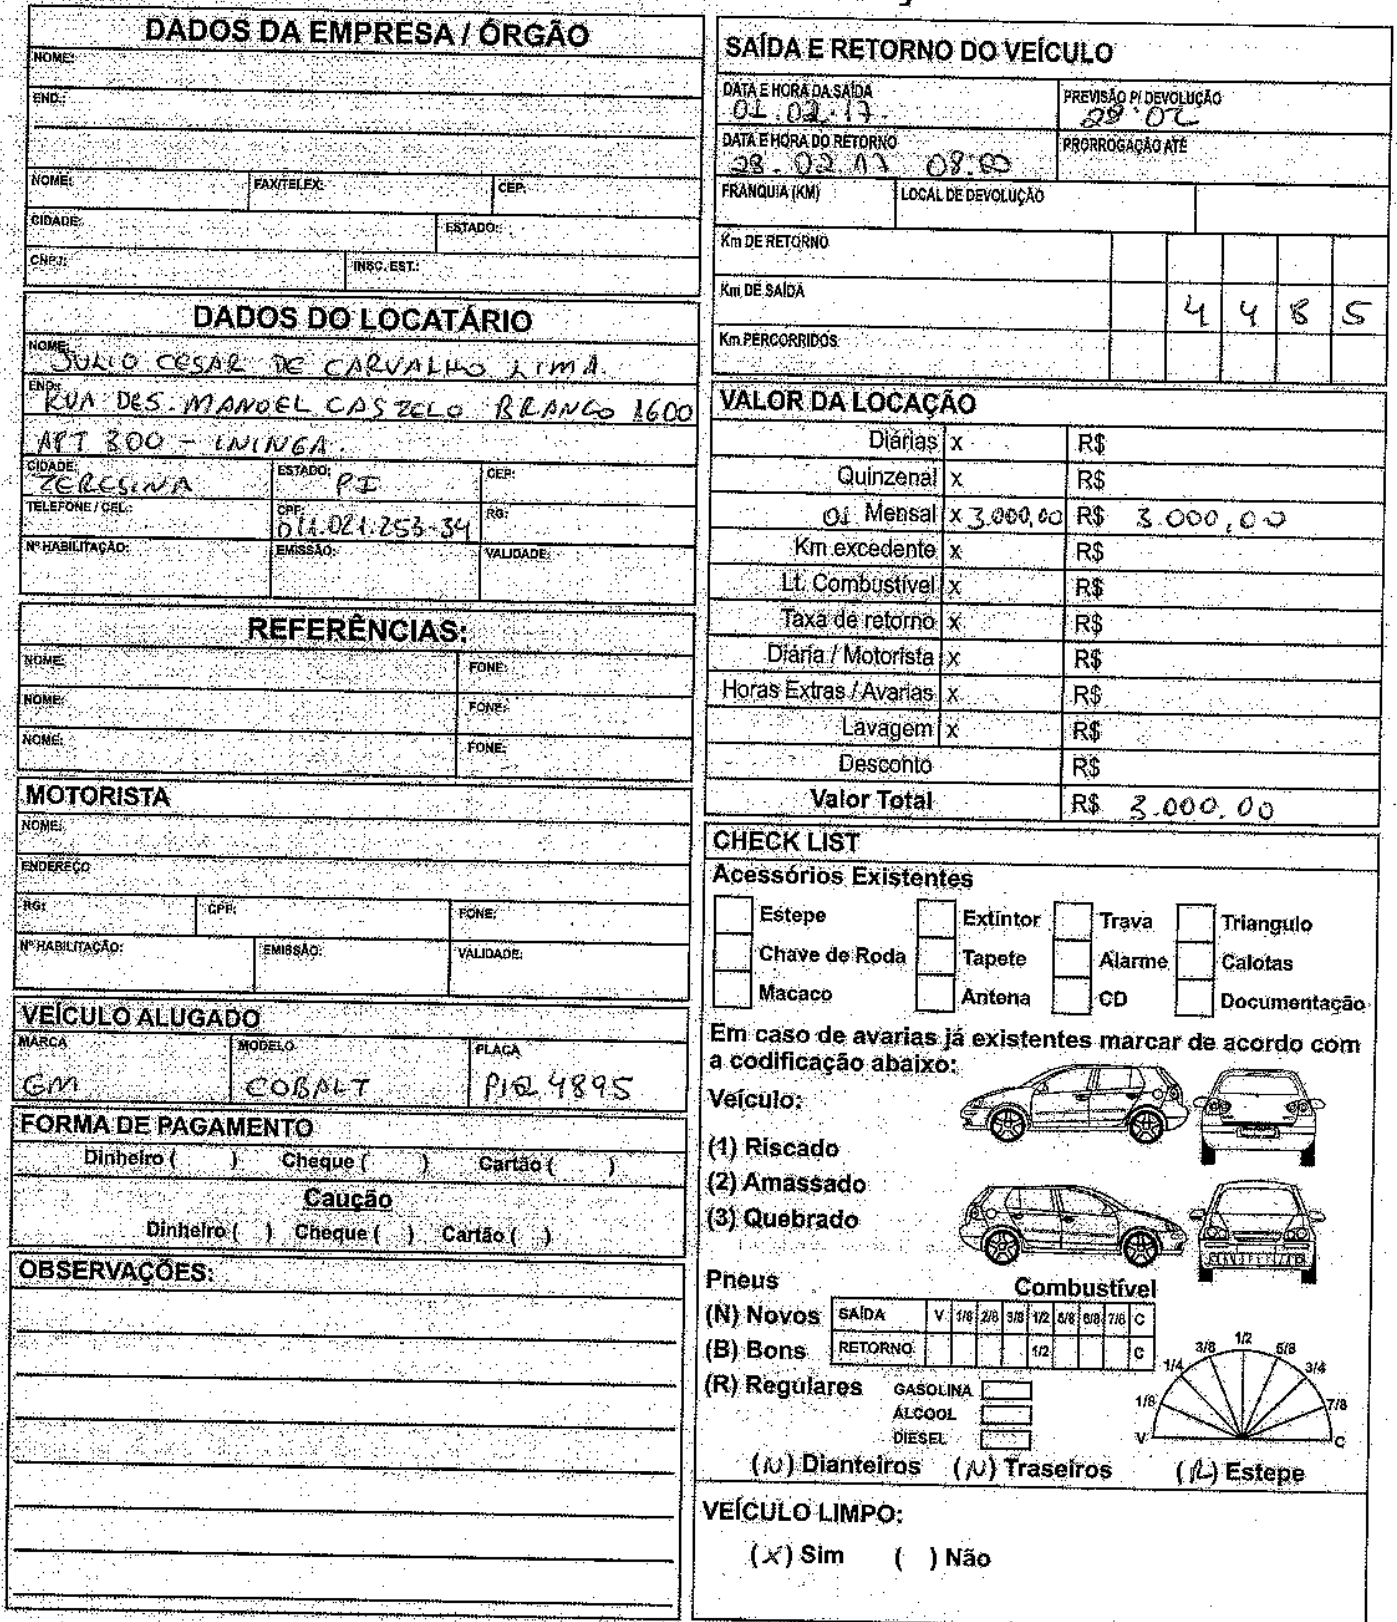 DADOS DA EMPRESA / ÓRGÃO
NOME:
END.:
NOME: FAX/TELEX: CEP:
CIDADE: ESTADO:
CNPJ: INSC. EST.:
DADOS DO LOCATÁRIO
NOME: JULIO CESAR DE CARVALHO LIMA
END: RUA DES. MANOEL CASTELO BRANCO 1600
APT 300 - ININGA.
CIDADE: TERESINA ESTADO: PI CEP:
TELEFONE / CEL.: CPF: 011.021.253-34 RG:
Nº HABILITAÇÃO: EMISSÃO: VALIDADE:
REFERÊNCIAS:
NOME: FONE:
NOME: FONE:
NOME: FONE:
MOTORISTA
NOME:
ENDEREÇO
RG: CPF: FONE:
Nº HABILITAÇÃO: EMISSÃO: VALIDADE:
VEÍCULO ALUGADO
MARCA MODELO PLACA
GM COBALT 4895
FORMA DE PAGAMENTO
Dinheiro ( ) Cheque ( ) Cartão ( )
Caução
Dinheiro ( ) Cheque ( ) Cartão ( )
OBSERVAÇÕES:
SAÍDA E RETORNO DO VEÍCULO
DATA E HORA DA SAÍDA PREVISÃO P/ DEVOLUÇÃO
01.02.17. 28.02
DATA E HORA DO RETORNO PRORROGAÇÃO ATÉ
28.02.17 08:00
FRANQUIA (KM) LOCAL DE DEVOLUÇÃO
Km DE RETORNO
Km DE SAÍDA 4 4 8 5
Km PERCORRIDOS
VALOR DA LOCAÇÃO
Diárias x R$
Quinzenal x R$
01 Mensal x 3.000,00 R$ 3.000,00
Km excedente x R$
Lt. Combustível x R$
Taxa de retorno x R$
Diária / Motorista x R$
Horas Extras / Avarias x R$
Lavagem x R$
Desconto R$
Valor Total R$ 3.000.00
CHECK LIST
Acessórios Existentes
Estepe Extintor Trava Triangulo
Chave de Roda Tapete Alarme Calotas
Macaco Antena CD Documentação
Em caso de avarias já existentes marcar de acordo com
a codificação abaixo:
Veículo:
(1) Riscado
(2) Amassado
(3) Quebrado
Pneus Combustível
(N) Novos SAÍDA V 1/8 2/8 3/8 1/2 5/8 6/8 7/8 C
(B) Bons RETORNO 1/2 C
(R) Regulares GASOLINA
ÁLCOOL
DIESEL
V 1/8 1/4 3/8 1/2 5/8 3/4 7/8 C
(N) Dianteiros (N) Traseiros (R) Estepe
VEÍCULO LIMPO:
(X) Sim ( ) Não